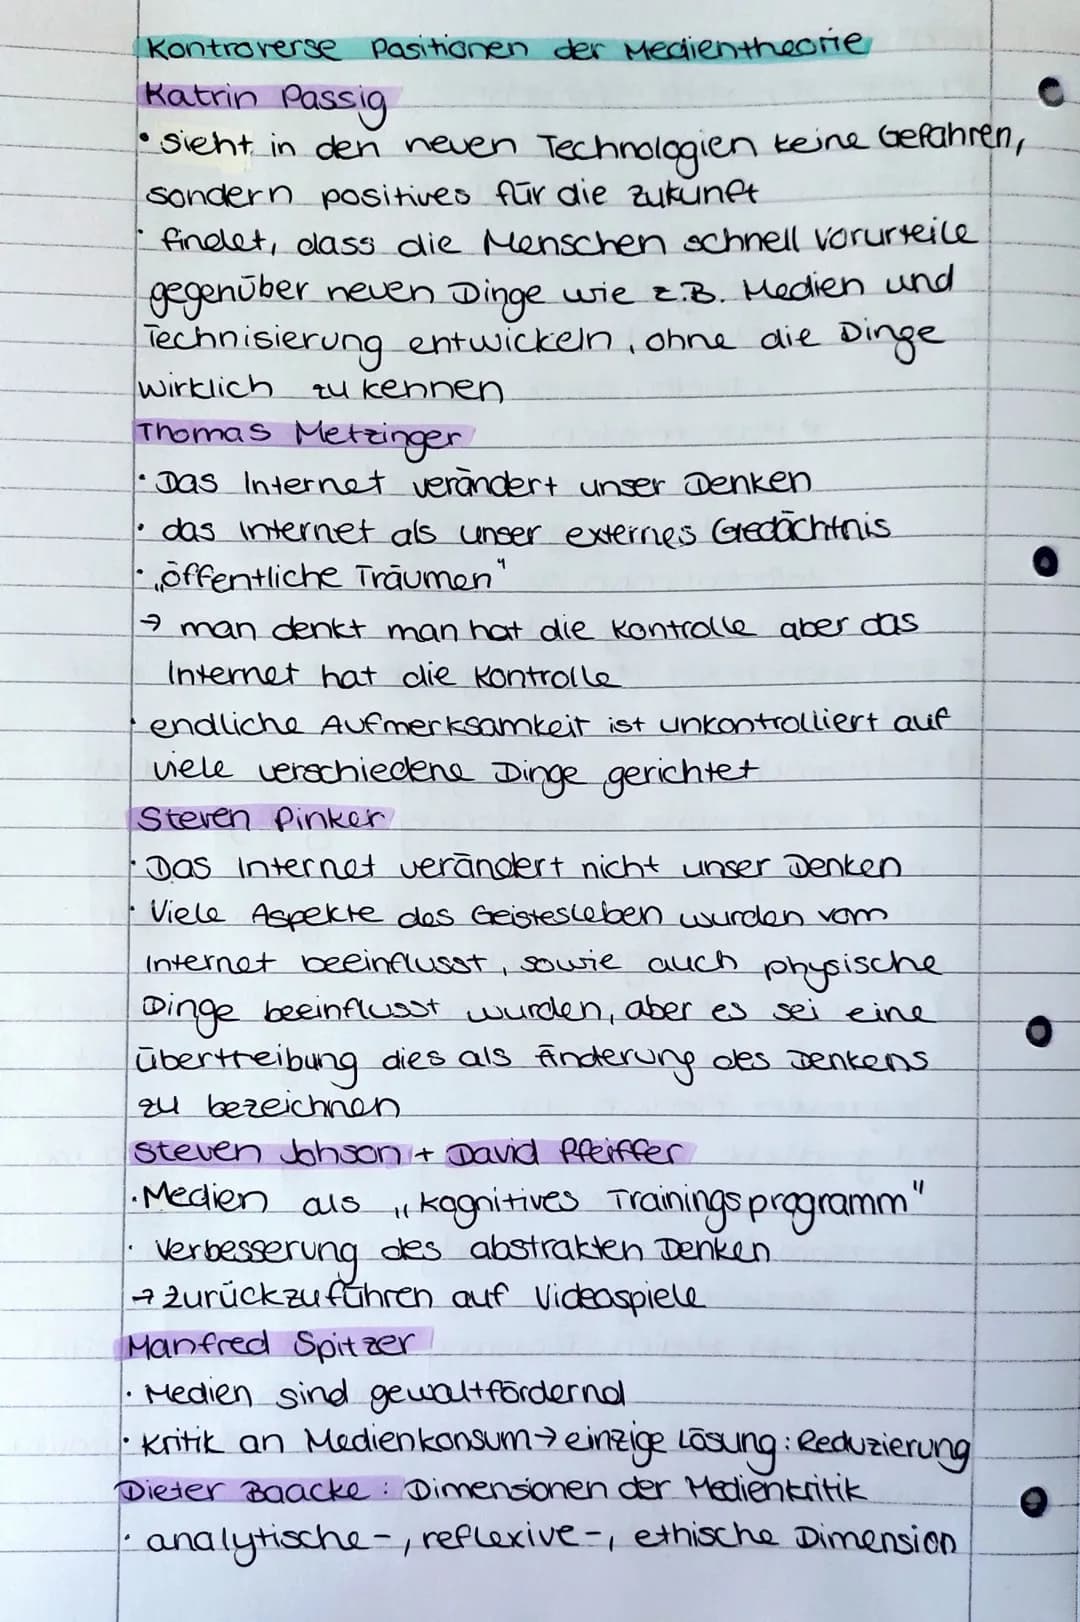 Kontroverse Positionen der Medientheorie
Katrin Passig
• sieht in den neuen Technologien keine Gefahren,
sondern positives für die Zukunft
• findet, dass die Menschen schnell Vorurteile
gegenüber neuen Dinge wie z.B. Medien und
Technisierung entwickeln, ohne die Dinge
wirklich zu kennen
Thomas Metzinger
• Das Internet verändert unser Denken
• das Internet als unser externes Gedächtnis
• „öffentliche Träumen"
→ man denkt man hat die Kontrolle aber das
Internet hat die Kontrolle
• endliche Aufmerksamkeit ist unkontrolliert auf
viele verschiedene Dinge gerichtet
Steven Pinker
• Das Internet verändert nicht unser Denken
• Viele Aspekte des Geistesleben wurden vom
Internet beeinflusst, sowie auch physische
Dinge beeinflusst wurden, aber es sei eine
übertreibung dies als Änderung des Denkens
zu bezeichnen
Steven Johson + David Pfeiffer
• Medien als „kognitives Trainingsprogramm"
• Verbesserung des abstrakten Denken
→ zurückzuführen auf Videospiele
Manfred Spitzer
• Medien sind gewaltfördernd
• Kritik an Medienkonsum → einzige Lösung: Reduzierung
Dieter Baacke: Dimensionen der Medienkritik
• analytische-, reflexive-, ethische Dimension